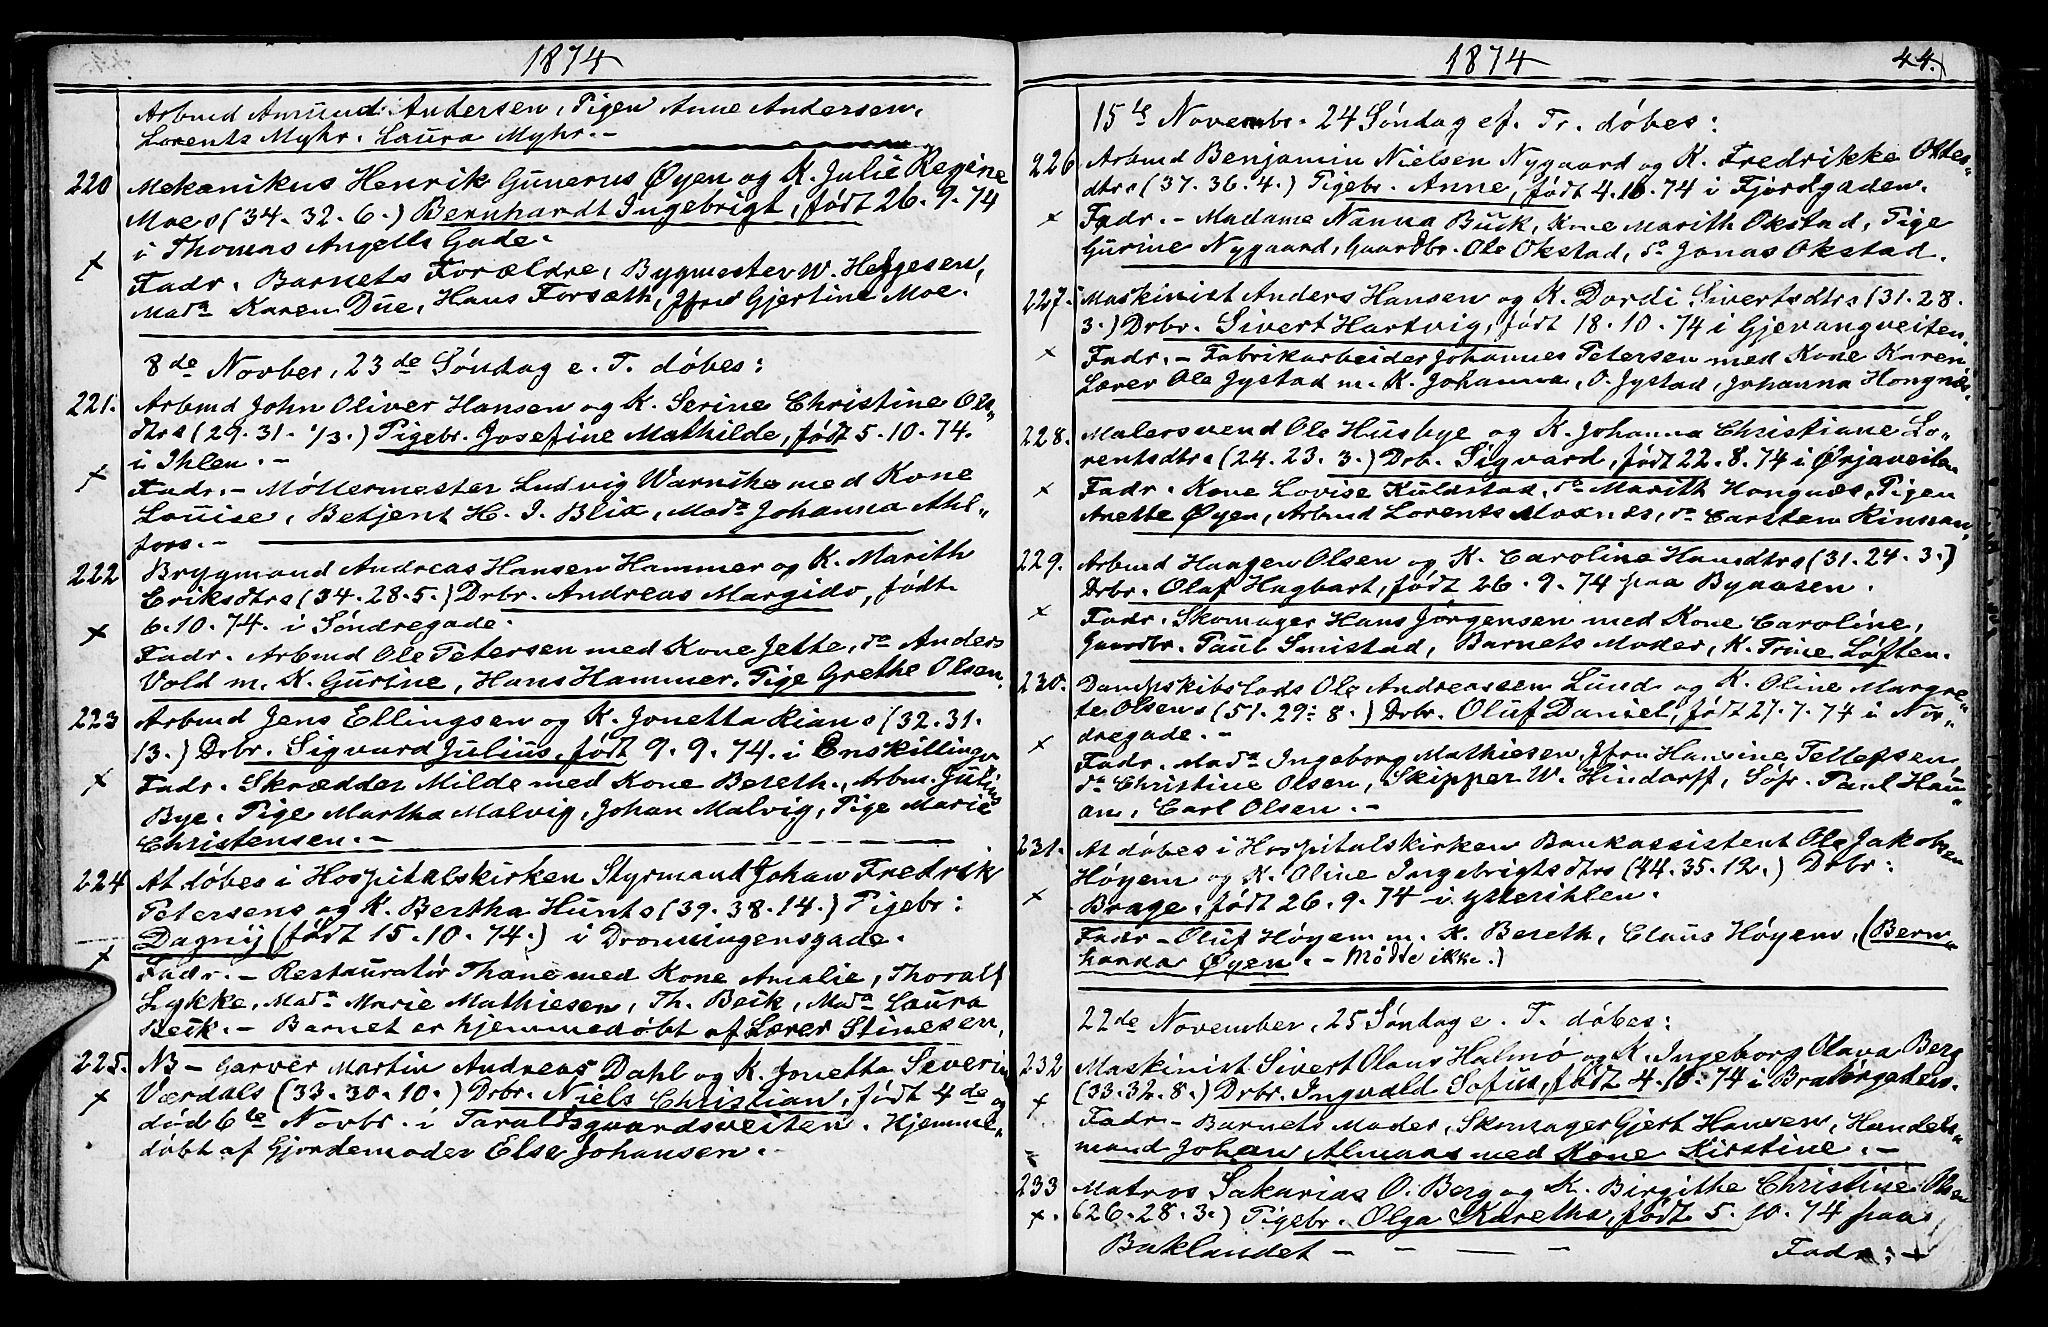 1874
Arbmd Amund Andersen, Pigen Anne Andersen,
Lorents Myhr. Laura Myhr. -
220 Mekanikus Henrik Gunerus Øyen og K. Julie Regine
Moes (34. 32. 6.) Bernhardt Ingebrigt, født 26. 9. 74
i Thomas Angells Gade.
Fadr. Barnets Forældre, Bygmester W. Helgesen,
Mada Karen Due, Hans Forsæth, Jfru Gjertine Moe.
8de Novber, 23de Søndag e. T. døbes:
221. Arbmd John Oliver Hansen og K. Serine Christine Ols„
dtrs (29. 31. 1/3.) Pigebr. Josefine Mathilde, født 5. 10. 74.
i Ihlen. -
Fadr. - Møllermester Ludvig Warnike med Kone
Louise, Betjent H. J. Blix, Mada Johanna Ahl„
fors. -
222 Brygmand Andreas Hansen Hammer og K. Marith
Eriksdtrs (34. 28. 5.) Drbr. Andreas Margido, født
6. 10. 74. i Søndregade.
Fadr. Arbmd Ole Petersen med Kone Jette, do Anders
Vold m. K. Gurine, Hans Hammer. Pige Grethe Olsen.
223 Arbmd Jens Ellingsen og K. Jonetta Rians (32. 31.
13.) Drbr. Sigvard Julius, født 9. 9. 74. i Enskillinge
Fadr. Skrædder Milde med Kone Bereth., Arbm. Julius
Bye, Pige Martha Malvig, Johan Malvig, Pige Marie
Christensen. -
224 At døbes i Hospitalskirken Styrmand Johan Fredrik
Petersens og K. Bertha Hunts (39. 38. 14.) Pigebr:
Dagny (født 15. 10. 74.) i Dronningensgade.
Fadr. - Restauratør Thane med Kone Amalie, Thoralf
Lykke, Mada Marie Mathiesen, Th. Beck, Mada Laura
Beck. - Barnet er hjemmedøbt af Lærer Stinesen.
225. NB - Garver Martin Andreas Dahl og K. Jonetta Severin
Værdals (33. 30. 10.) Drbr. Niels Christian, født 4de og
død 6te Novbr. i Taraldsgaardsveiten. Hjemme„
døbt af Gjordemoder Else Johansen. -
1874 44.
15de Novembr. 24 Søndag ef. Tr. døbes:
226 Arbmd Benjamin Nielsen Nygaard og K. Fredrikke Oldes„
dtrs (37. 36. 4.) Pigebr. Anne, født 4. 10. 74 i Fjordgaden.
Fadr. - Madame Nanna Buck, Kone Marith Okstad, Pige
Gurine Nygaard, Gaardbr. Ole Okstad, do Jonas Okstad.
227. Maskinist Anders Hansen og K. Dordi Sivertsdtrs (31. 28.
3.) Drbr. Sivert Hartvig, født 18. 10. 74 i Gjevangveiten.
Fadr. - Fabrikarbeider Johannes Petersen med Kone Karen,
Lærer Ole Jystad m. K. Johanna, O. Jystad, Johanna Hongnæs.
228. Malersvend Ole Husbye og K. Johanna Christiane Lo„
rentsdtrs (24. 23. 3.) Drb. Sigvard, født 22. 8. 74 i Ørjaveiten
Fadr. Kone Lovise Kuldstad, do Maritt Hongnæs, Pigen
Anette Øyen, Arbmd Lorents Moxnes, do Carsten Rinnan,
229. Arbmd Haagen Olsen og K. Caroline Hansdtrs (31. 24. 3.)
Drbr. Olaf Hagbart, født 26. 9. 74 paa Byaasen.
Fadr. Skomager Hans Jørgensen med Kone Caroline,
Gaardbr. Paul Smistad, Barnets Moder, K. Trine Løften.
230. Dampskibslods Ole Andreassen Lund og K. Oline Margre„
te Olsens (51. 29. 8.) Drbr. Oluf Daniel, født 27. 7. 74 i Nor„
dregade. -
Fadr. Mada Ingeborg Mathiesen, Jfru Hansine Tellefsen,
do Christine Olsen, Skipper W. Hindorff, Søfr. Paul Hau„
an, Carl Olsen. -
231. At døbes i Hospitalskirken Bankassistent Ole Jakobsen
Høyem og K. Oline Ingebrigtsdtrs (44. 35. 12.) Drbr:
Brage, født 26. 9. 74 i ytterihlen.
Fadr - Oluf Høyem m. K. Bereth, Claus Høyem, (Bern„
harda Øyen. - Mødte ikke.)
22de November, 25 Søndag e. T. døbes:
232 Maskinist Sivert Olaus Halmø og K. Ingeborg Olava Berg
(33. 32. 8.) Drbr. Ingvald Sofus, født 4. 10. 74 i Bratørgaden.
Fadr. - Barnets Moder, Skomager Gjert Hansen, Handels„
mand Johan Almaas med Kone Kirstine. -
233 Matros Sakarias O. Berg og K. Birgithe Christine Olsen
(26. 28. 3.) Pigebr. Olga Karetha, født 5. 10. 74 paa
Baklandet - - - - Fadr: -